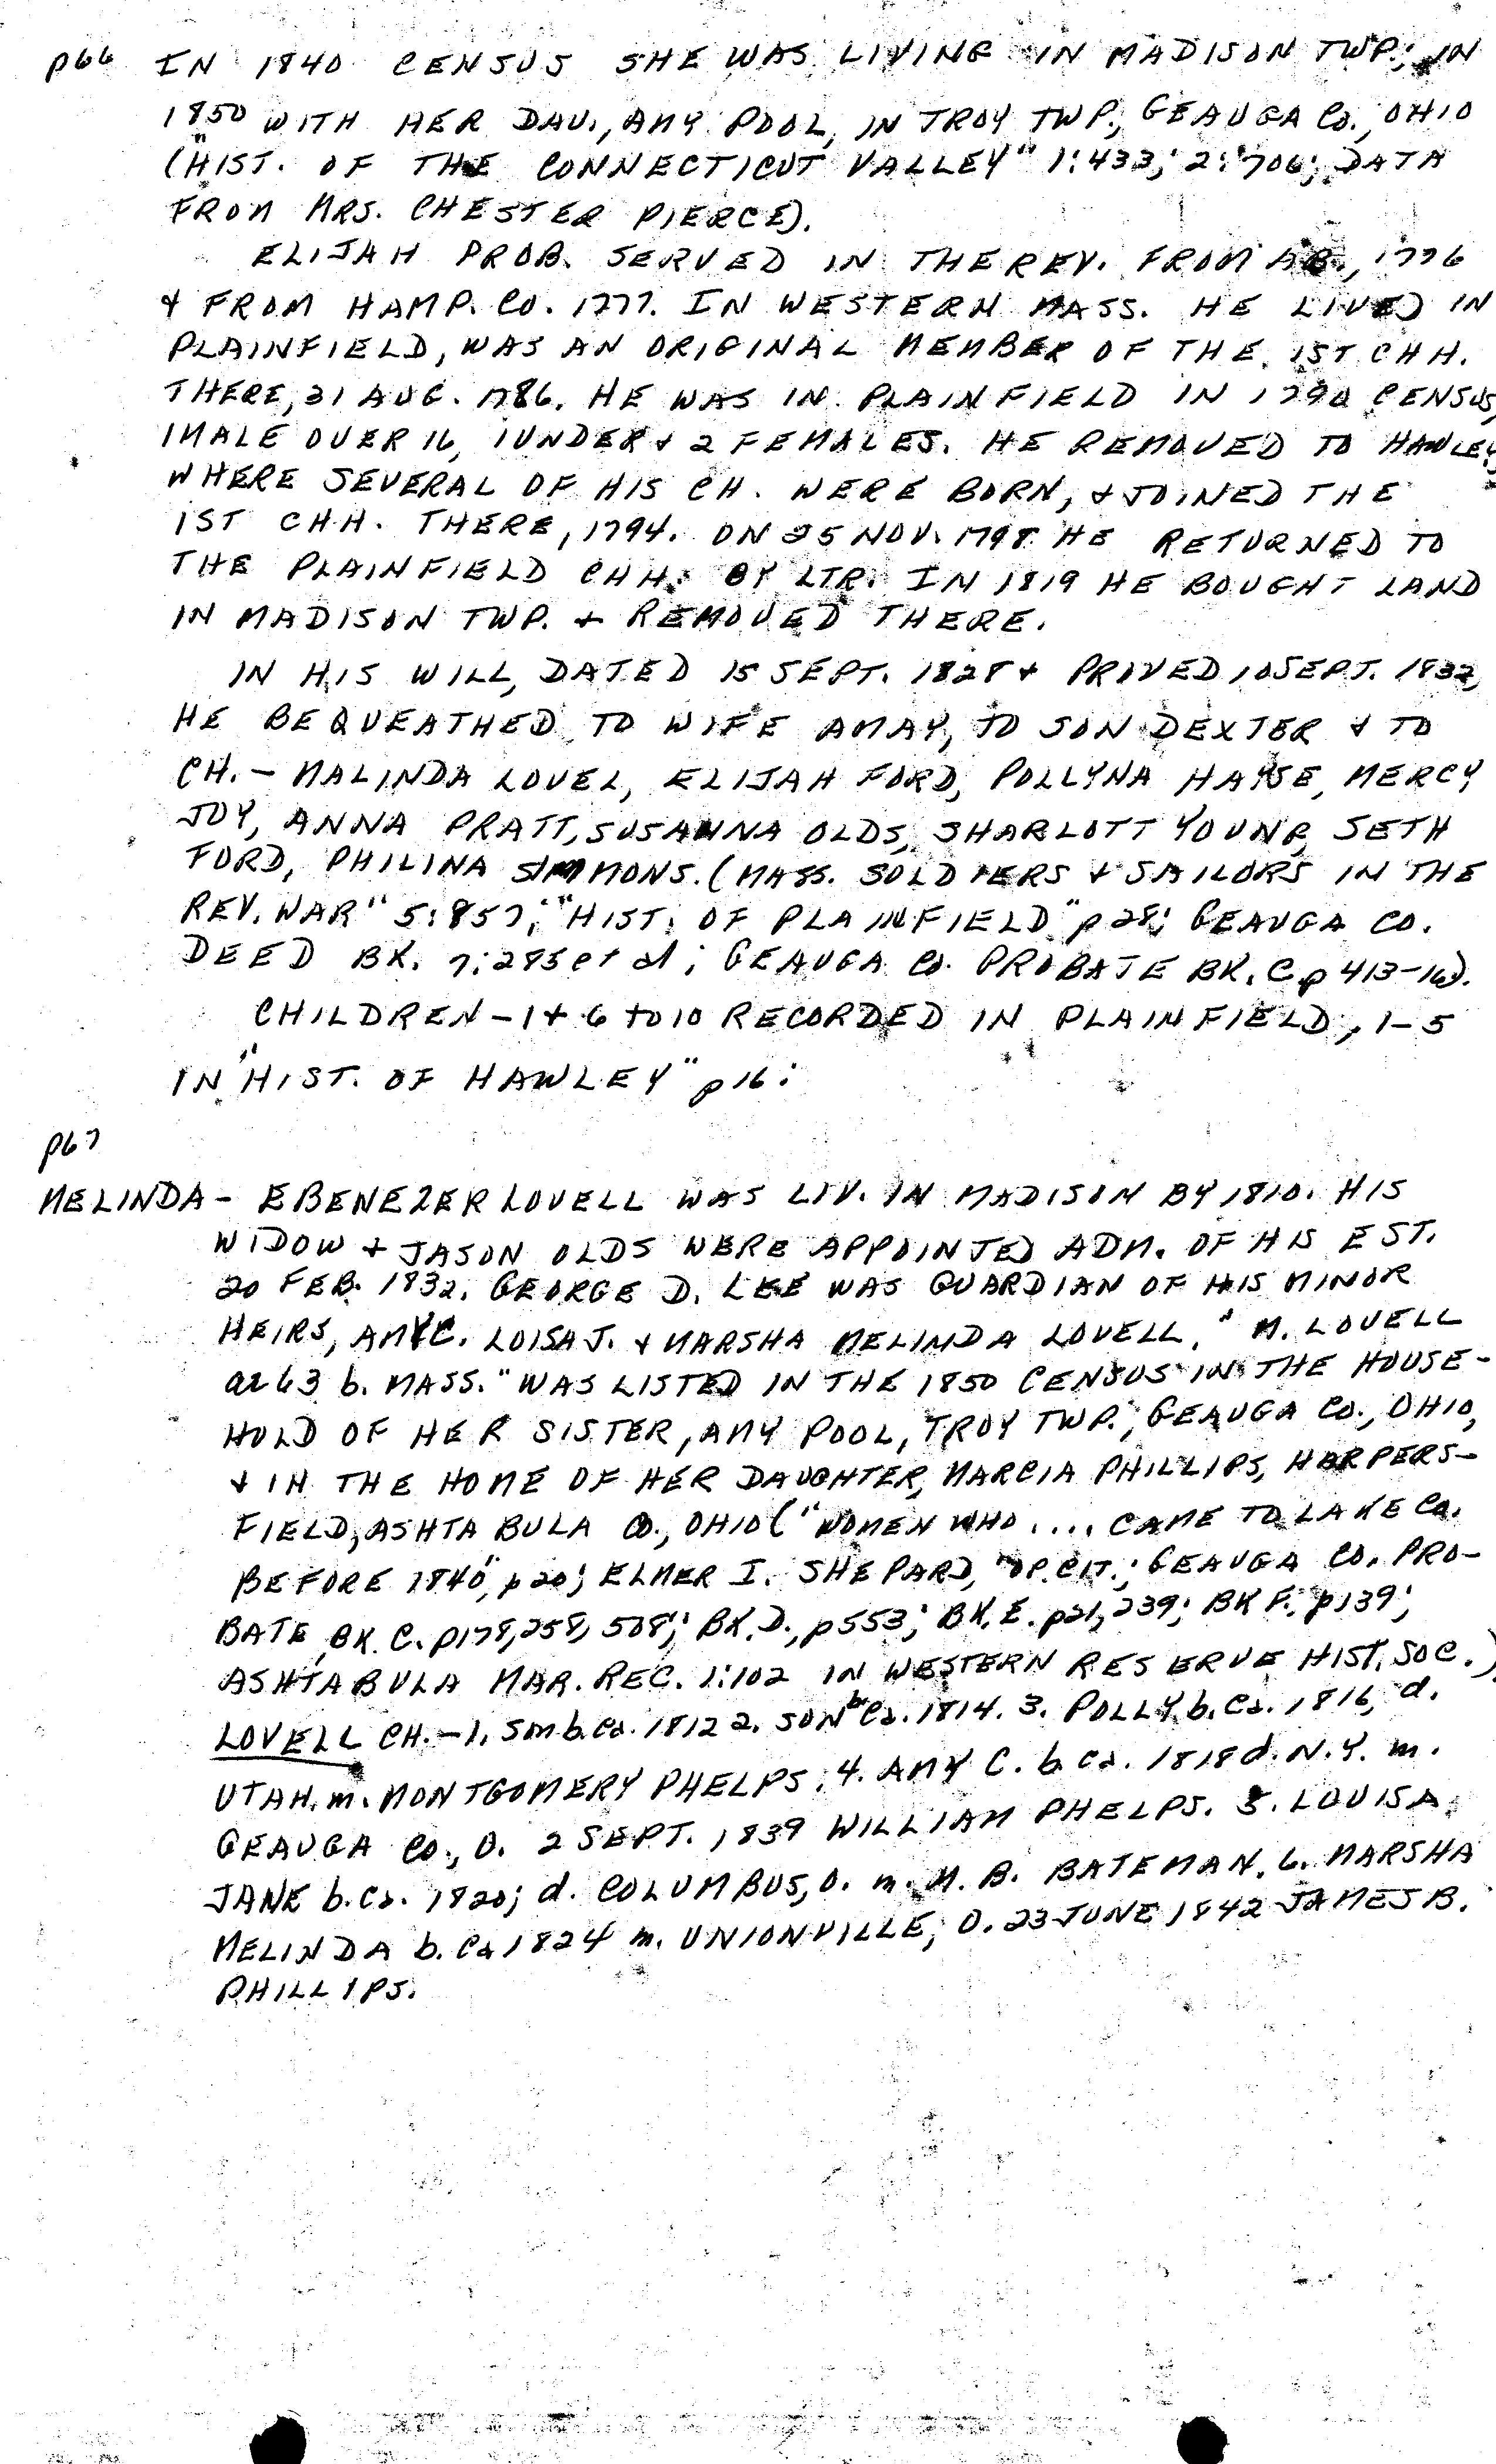 p66 IN 1840 CENSUS SHE WAS LIVING IN MADISON TWP; IN
1850 WITH HER DAU., AMY POOL, IN TROY TWP., GEAUGA Co., OHIO
("HIST. OF THE CONNECTICUT VALLEY" 1:433; 2:706; DATA
FROM MRS. CHESTER PIERCE).
ELIJAH PROB. SERVED IN THE REV. FROM 1776
& FROM HAMP. Co. 1777. IN WESTERN MASS. HE LIVED IN
PLAINFIELD, WAS AN ORIGINAL MEMBER OF THE 1ST CHH.
THERE, 31 AUG. 1786. HE WAS IN PLAINFIELD IN 1790 CENSUS,
1 MALE OVER 16, 1 UNDER & 2 FEMALES. HE REMOVED TO HAWLEY,
WHERE SEVERAL OF HIS CH. WERE BORN, & JOINED THE
1ST CHH. THERE, 1794. ON 25 NOV. 1798 HE RETURNED TO
THE PLAINFIELD CHH. BY LTR. IN 1819 HE BOUGHT LAND
IN MADISON TWP. & REMOVED THERE.
IN HIS WILL, DATED 15 SEPT. 1828 & PROVED 10 SEPT. 1832,
HE BEQUEATHED TO WIFE AMAY, TO SON DEXTER & TO
CH. - MALINDA LOVEL, ELIJAH FORD, POLLYNA HAYSE, MERCY
JOY, ANNA PRATT, SUSANNA OLDS, SHARLOTT YOUNG, SETH
FORD, PHILINA SIMMONS. (MASS. SOLDIERS & SAILORS IN THE
REV. WAR" 5:857; "HIST. OF PLAINFIELD" p 28; GEAUGA CO.
DEED BK. 7:285 et al; GEAUGA Co. PROBATE BK. C p 413-16).
CHILDREN - 1 & 6 to 10 RECORDED IN PLAINFIELD, 1-5
IN "HIST. OF HAWLEY" p 16:
p67
MELINDA - EBENEZER LOVELL WAS LIV. IN MADISON BY 1810. HIS
WIDOW & JASON OLDS WERE APPOINTED ADM. OF HIS EST.
20 FEB. 1832. GEORGE D. LEE WAS GUARDIAN OF HIS MINOR
HEIRS, AMY C. LOISA J. & MARSHA MELINDA LOVELL. "M. LOVELL
ae 63 b. MASS." WAS LISTED IN THE 1850 CENSUS IN THE HOUSE-
HOLD OF HER SISTER, AMY POOL, TROY TWP., GEAUGA Co., OHIO,
& IN THE HOME OF HER DAUGHTER, MARCIA PHILLIPS, HARPERS-
FIELD, ASHTABULA CO., OHIO ("WOMEN WHO .... CAME TO LAKE Co.
BEFORE 1840", p 20; ELMER I. SHEPARD, OP. CIT.; GEAUGA CO. PRO-
BATE, BK. C. p178, 258, 508; BK. D., p553; BK. E. p21, 239; BK F. p139;
ASHTABULA MAR. REC. 1:102 IN WESTERN RESERVE HIST. SOC.)
LOVELL CH. - 1. Son b. ca. 1812 2. SON b. ca. 1814. 3. POLLY b. ca. 1816, d.
UTAH. m. MONTGOMERY PHELPS. 4. AMY C. b. ca. 1818 d. N.Y. m.
GEAUGA Co., O. 2 SEPT. 1839 WILLIAM PHELPS. 5. LOUISA
JANE b. ca. 1820; d. COLUMBUS, O. m. M. B. BATEMAN. 6. MARSHA
MELINDA b. ca 1824 m. UNIONVILLE, O. 23 JUNE 1842 JAMES B.
PHILLIPS.